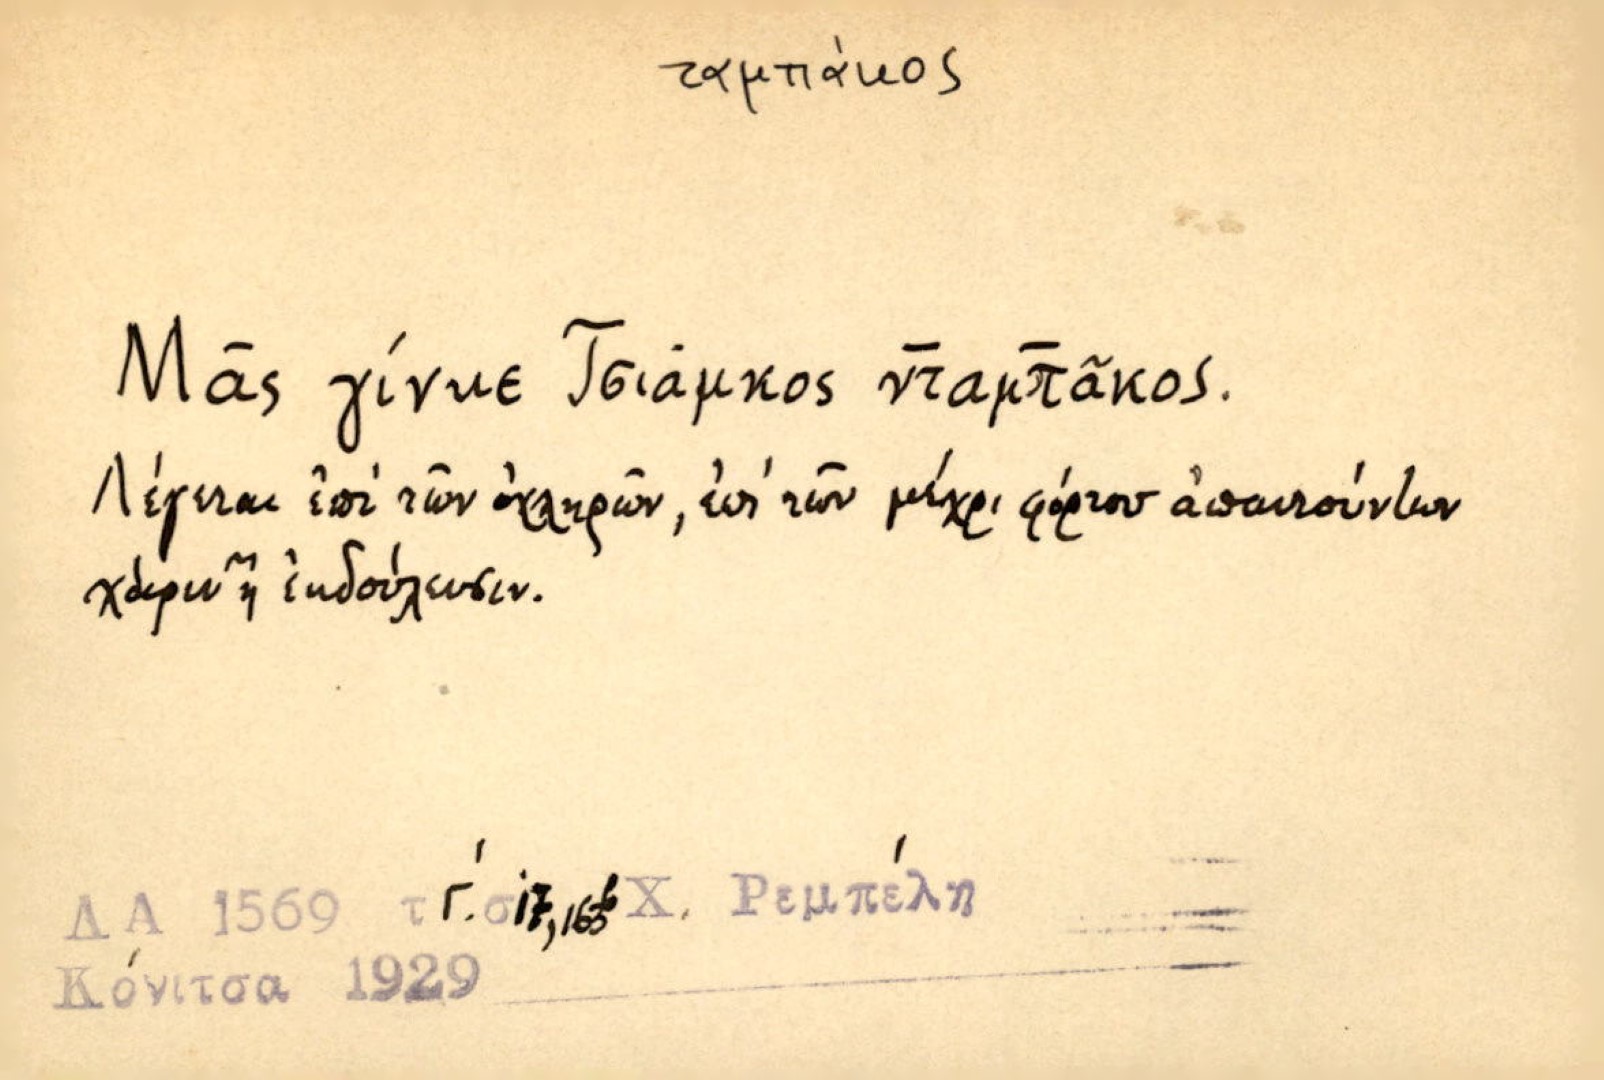 ταμπάκος
Μᾶς γίνκε Τσιάμκος νταμπᾶκος.
Λέγεται ἐπὶ τῶν ὀχληρῶν, ἐπὶ τῶν μέχρι φόρτου ἀπαιτούντων
χάριν ἢ ἐκδούλευσιν.
ΛΑ 1569 τ Γ'. σ Χ. Ρεμπέλη
Κόνιτσα 1929